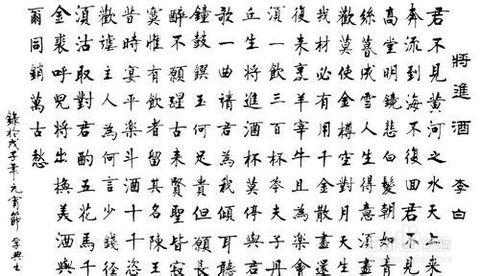 將進酒 李白
君不見黃河之水天上來
奔流到海不復回君不見
高堂明鏡悲白髮朝如青
絲暮成雪人生得意須盡
歡莫使金樽空對月天生
我材必有用千金散盡還
復來烹羊宰牛且為樂會
須一飲三百杯岑夫子丹
丘生將進酒杯莫停與君
歌一曲請君為我傾耳聽
鐘鼓饌玉何足貴但願長
醉不願醒古來聖賢皆寂
寞惟有飲者留其名陳王
昔時宴平樂斗酒十千恣
歡謔主人為何言少錢徑
須沽取對君酌五花馬千
金裘呼兒將出換美酒與
爾同銷萬古愁
錄於戊子年元宵節